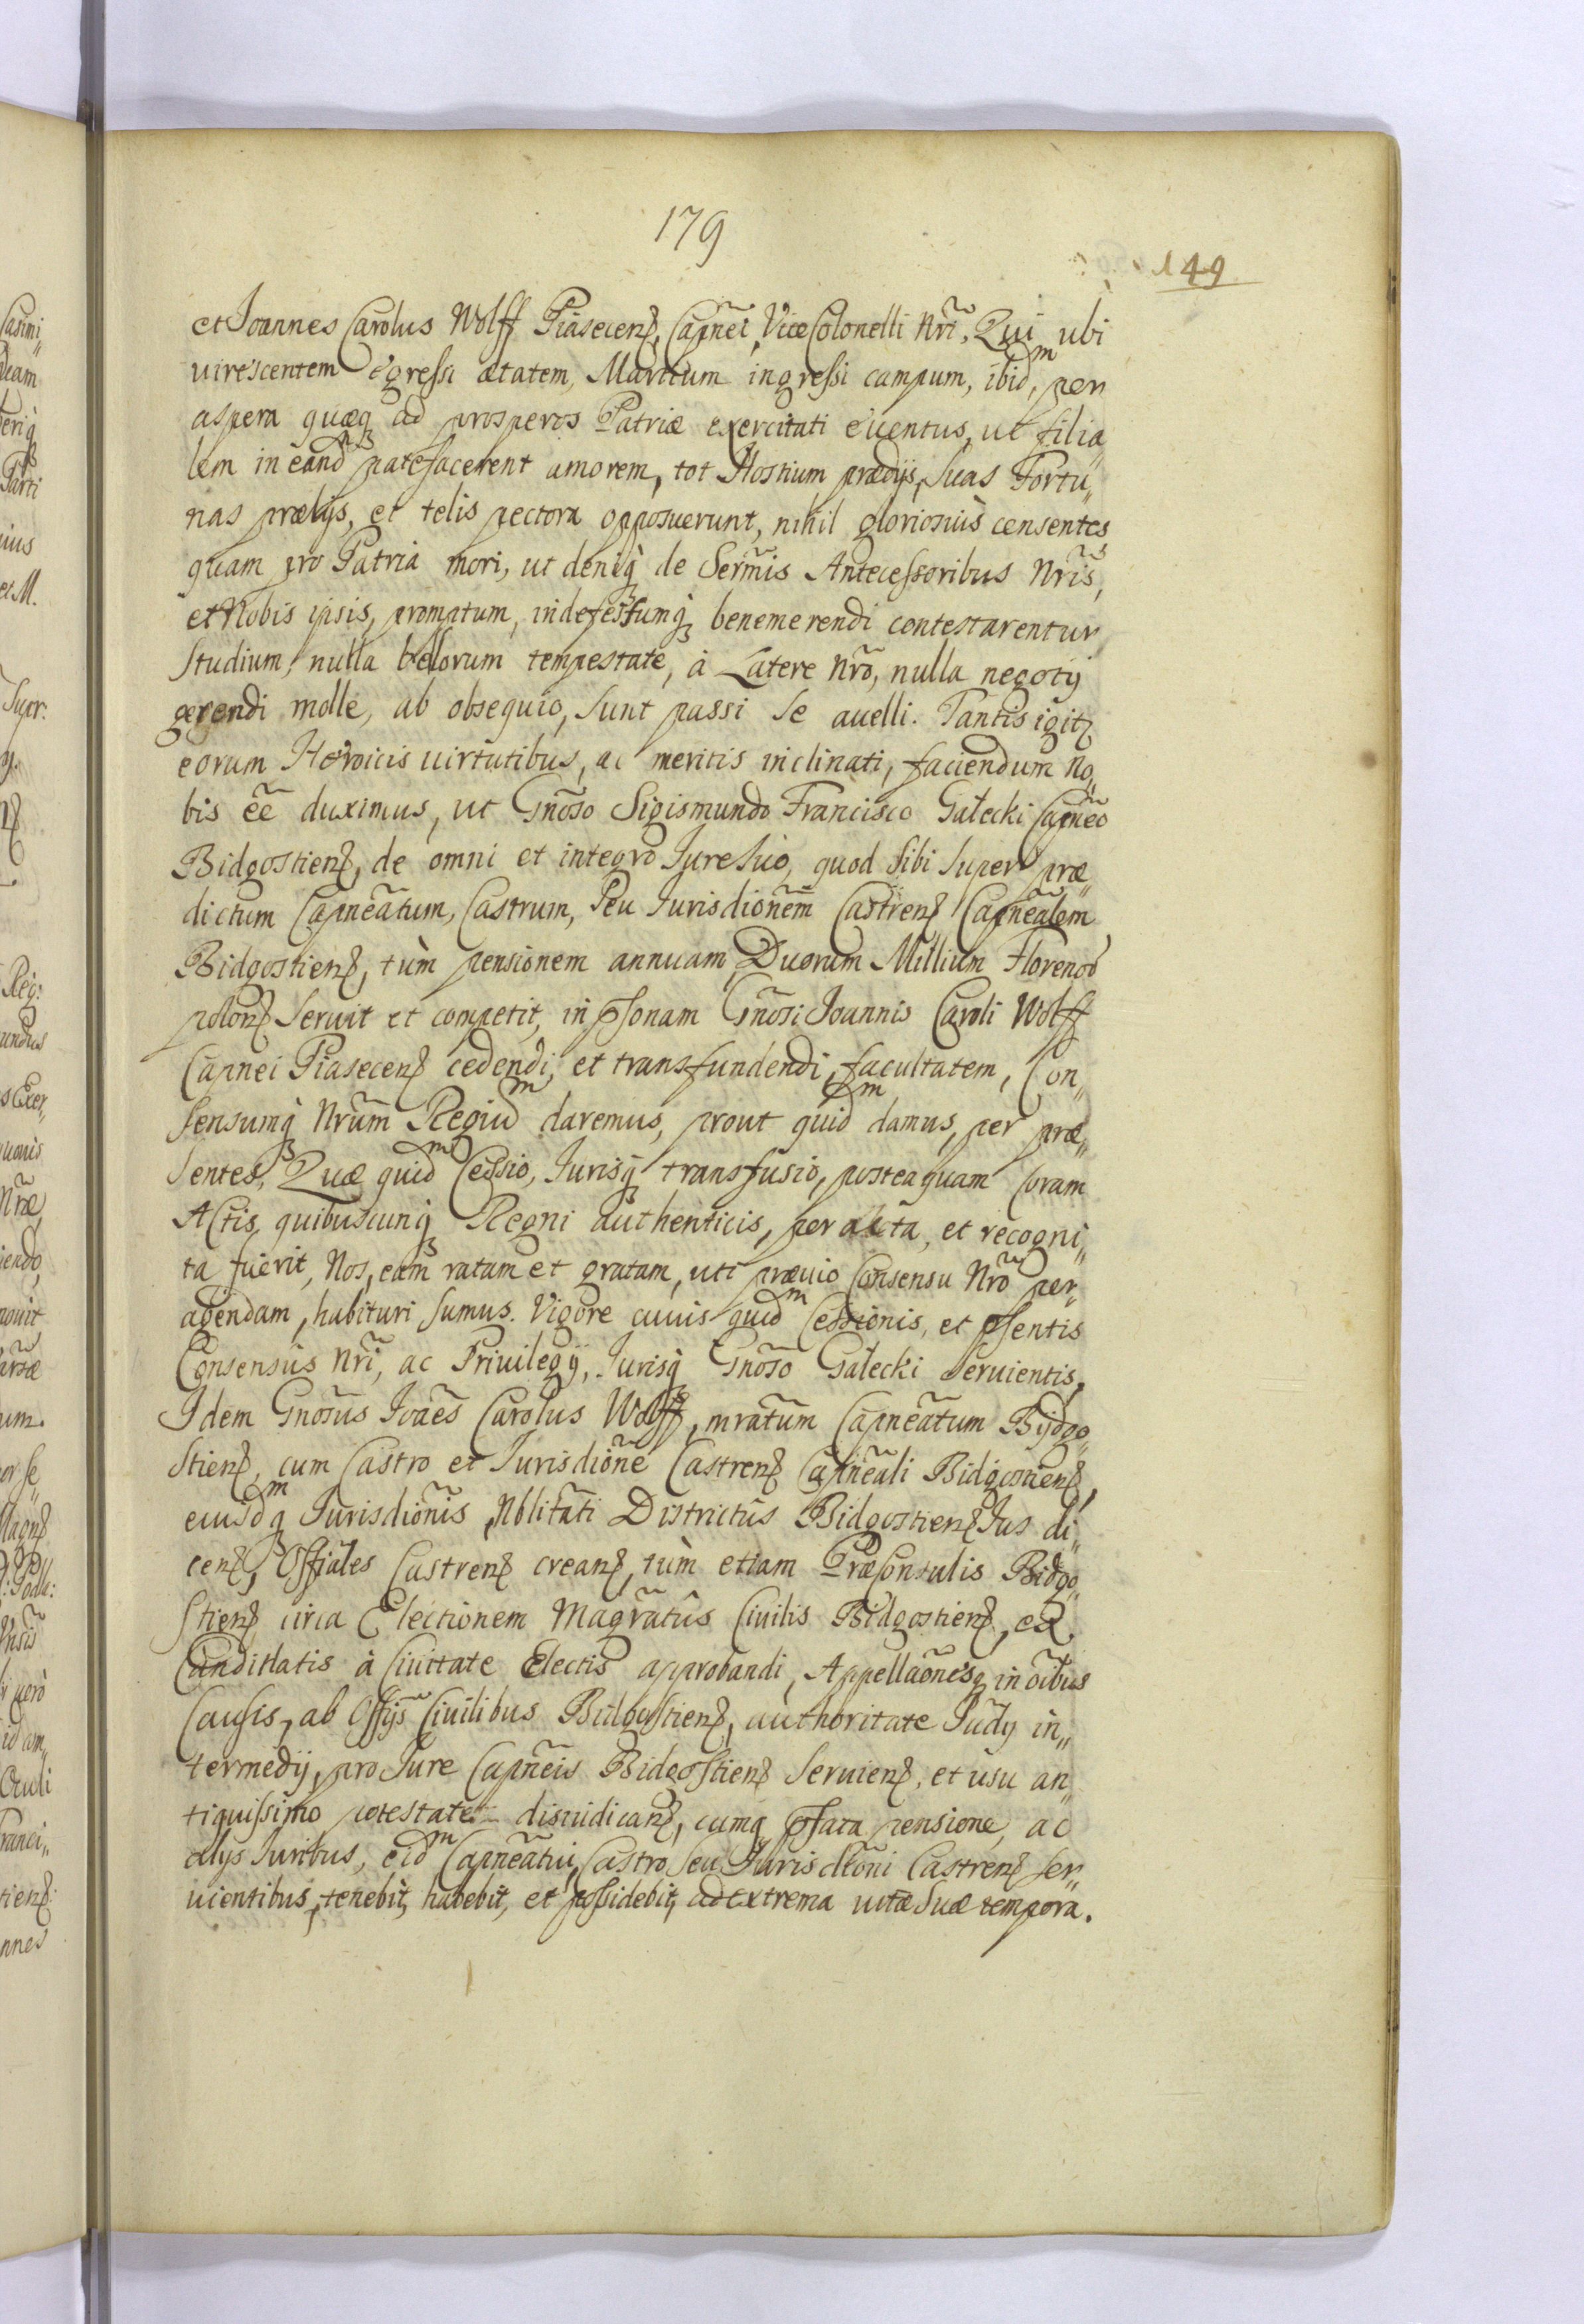 179
149
et Joannes Carolus Wolff Piasecenß, Capñei, Vice Colonelli Nr̃i, Qui ubi
uirescentem egressi ætatem, Martium ingressi campum, ibidᵐ, per
aspera quæq̨ ad prosperos Patriæ exercitati euentus, ut filia„
lem in eand̃ patefacerent amorem, tot Hostium prædijs, suas Fortu„
nas prælijs, et telis pectora opposuerunt, nihil gloriosiùs censentes
quam pro Patria mori, ut deniq̨ de Serm̃is Antecessoribus Nr̃is,
et Nobis ipsis, promptum, indefessumq̨ benemerendi contestarentur
Studium, nulla bellorum tempestate, à Latere Nrõ, nulla negotij
gerendi molle, ab obsequio, sunt passi se auelli. Tantis igitꝫ
eorum Heroicis uirtutibus, ac meritis inclinati, faciendum No„
bis eẽ duximus, ut Gnõso Sigismundo Francisco Gałecki Capñeo
Bidgostienß, de omni et integro Jure suo, quod sibi super præ„
dictum Capneãtum, Castrum, seu Jurisdiõnem Castrenß Capneãlem
Bidgostienß, tùm pensionem annuam Duorum Millium Floreno℞
polonß seruit et competit, in psonam Gnõsi Joannis Caroli Wolff
Capnei Piasecenß cedendi, et transfundendi, facultatem, Con„
sensumq̨ Nrũm Regiuᵐ daremus, prout quidᵐ damus, per præ„
sentes, Quæ quidᵐ Cessio, Jurisq̨ transfusio, posteaquam Coram
Actis, quibuscunq̨ Regni authenticis, peracta, et recogni„
ta fuerit, Nos, eam ratam et gratam, uti præuio Consensu Nrõ per„
agendam, habituri sumus. Vigore cuius quidᵐ Cessionis, et psentis
Consensûs Nr̃i, ac Priuilegij, Jurisq̨ Gnõso Gałecki seruientis,
Idem Gnõsus Joães Carolus Wolff, mratũm Capneãtum Bijdgo„
stienß, cum Castro et Jurisdiõne Castrenß Capneãli Bidgostienß,
eiusdᵐq̨ Jurisdiõnis, Nblitãti Districtûs Bidgostienß Jus di„
cenß, Offiãles Castrenß creanß, tùm etiam PræConsulis Bidgo„
stienß circa Electionem Magrãtûs Ciuilis Bidgostienß, ex
Canditlatis à Ciuitate Electis approbandi, Appellaõnesq̨ in oĩbus
Causis, ab Offijs Ciuilibus Bidgostienß, authoritate Judij in„
termedij, pro Jure Capñeis Bidgostienß seruienß, et usu an„
tiquissimo potestate disiudicanß, cumq̨ pfata pensione, ac
alijs Juribus, eidᵐ Capneãtui, Castro seu Jurisdctõni Castrenß ser„
uientibus, tenebit, habebit, et possidebit, ad extrema uitæ suæ tempora.